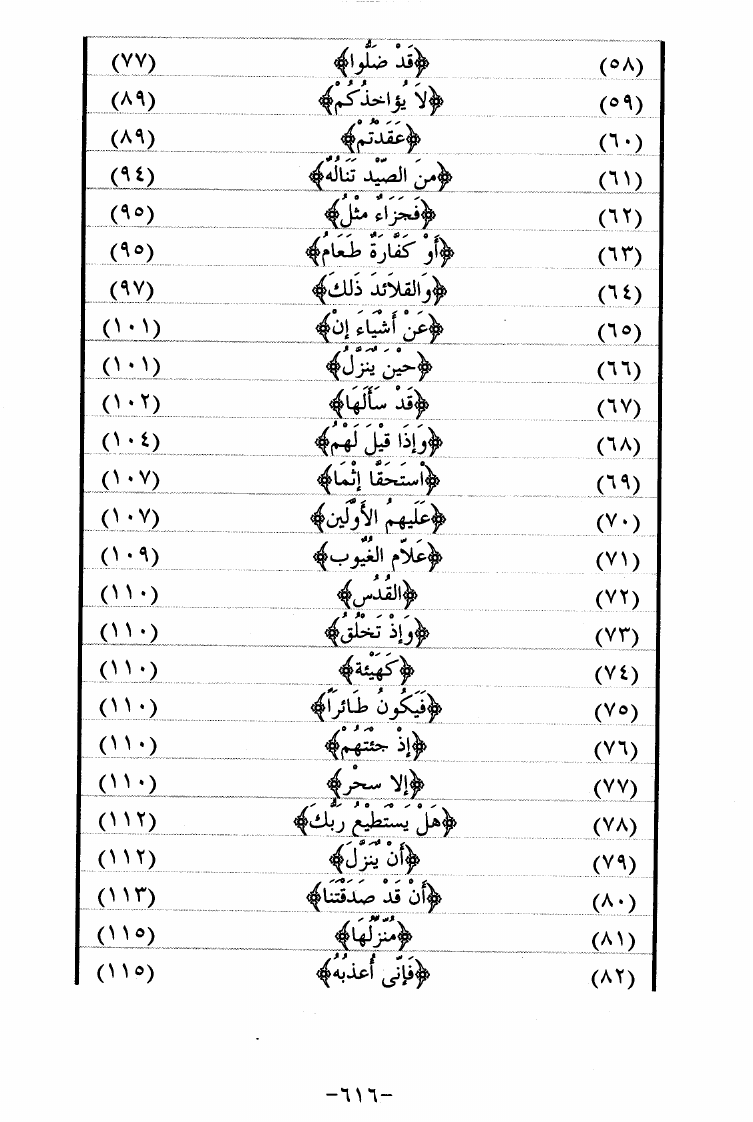 (٥٨) ﴿قَدْ ضَلُّوا﴾ (٧٧)
(٥٩) ﴿لاَ يُؤاخذُكُمْ﴾ (٨٩)
(٦٠) ﴿عَقَدْتُمْ﴾ (٨٩)
(٦١) ﴿منَ الصَّيْد تَنَالُهُ﴾ (٩٤)
(٦٢) ﴿فَجَزَاءٌ مثْلُ﴾ (٩٥)
(٦٣) ﴿أَوْ كَفَّارَةٌ طَعَامُ﴾ (٩٥)
(٦٤) ﴿وَالقلاَئدَ ذَلكَ﴾ (٩٧)
(٦٥) ﴿عَنْ أَشْيَاءَ إنْ﴾ (١٠١)
(٦٦) ﴿حيْنَ يُنَزَّلُ﴾ (١٠١)
(٦٧) ﴿قَدْ سَأَلَهَا﴾ (١٠٢)
(٦٨) ﴿وَإذَا قيْلَ لَهُمْ﴾ (١٠٤)
(٦٩) ﴿اسْتَحَقَّا إثْمَا﴾ (١٠٧)
(٧٠) ﴿عَلَيهمُ الأَوَّلَين﴾ (١٠٧)
(٧١) ﴿عَلاَّم الغُيُوب﴾ (١٠٩)
(٧٢) ﴿القُدُس﴾ (١١٠)
(٧٣) ﴿وَإذْ تَخْلُقُ﴾ (١١٠)
(٧٤) ﴿كَهَيْئَة﴾ (١١٠)
(٧٥) ﴿فَيَكُونُ طَائراً﴾ (١١٠)
(٧٦) ﴿إذْ جئْتَهُمْ﴾ (١١٠)
(٧٧) ﴿إلا سحْرٌ﴾ (١١٠)
(٧٨) ﴿هَلْ يَسْتَطيْعُ رَبُّكَ﴾ (١١٢)
(٧٩) ﴿أَنْ يُنَزَّلَ﴾ (١١٢)
(٨٠) ﴿أَنْ قَدْ صَدَقْتَنَا﴾ (١١٣)
(٨١) ﴿مُنَزِّلُهَا﴾ (١١٥)
(٨٢) ﴿فَإنِّى أُعَذبُهُ﴾ (١١٥)
-٦١٦-